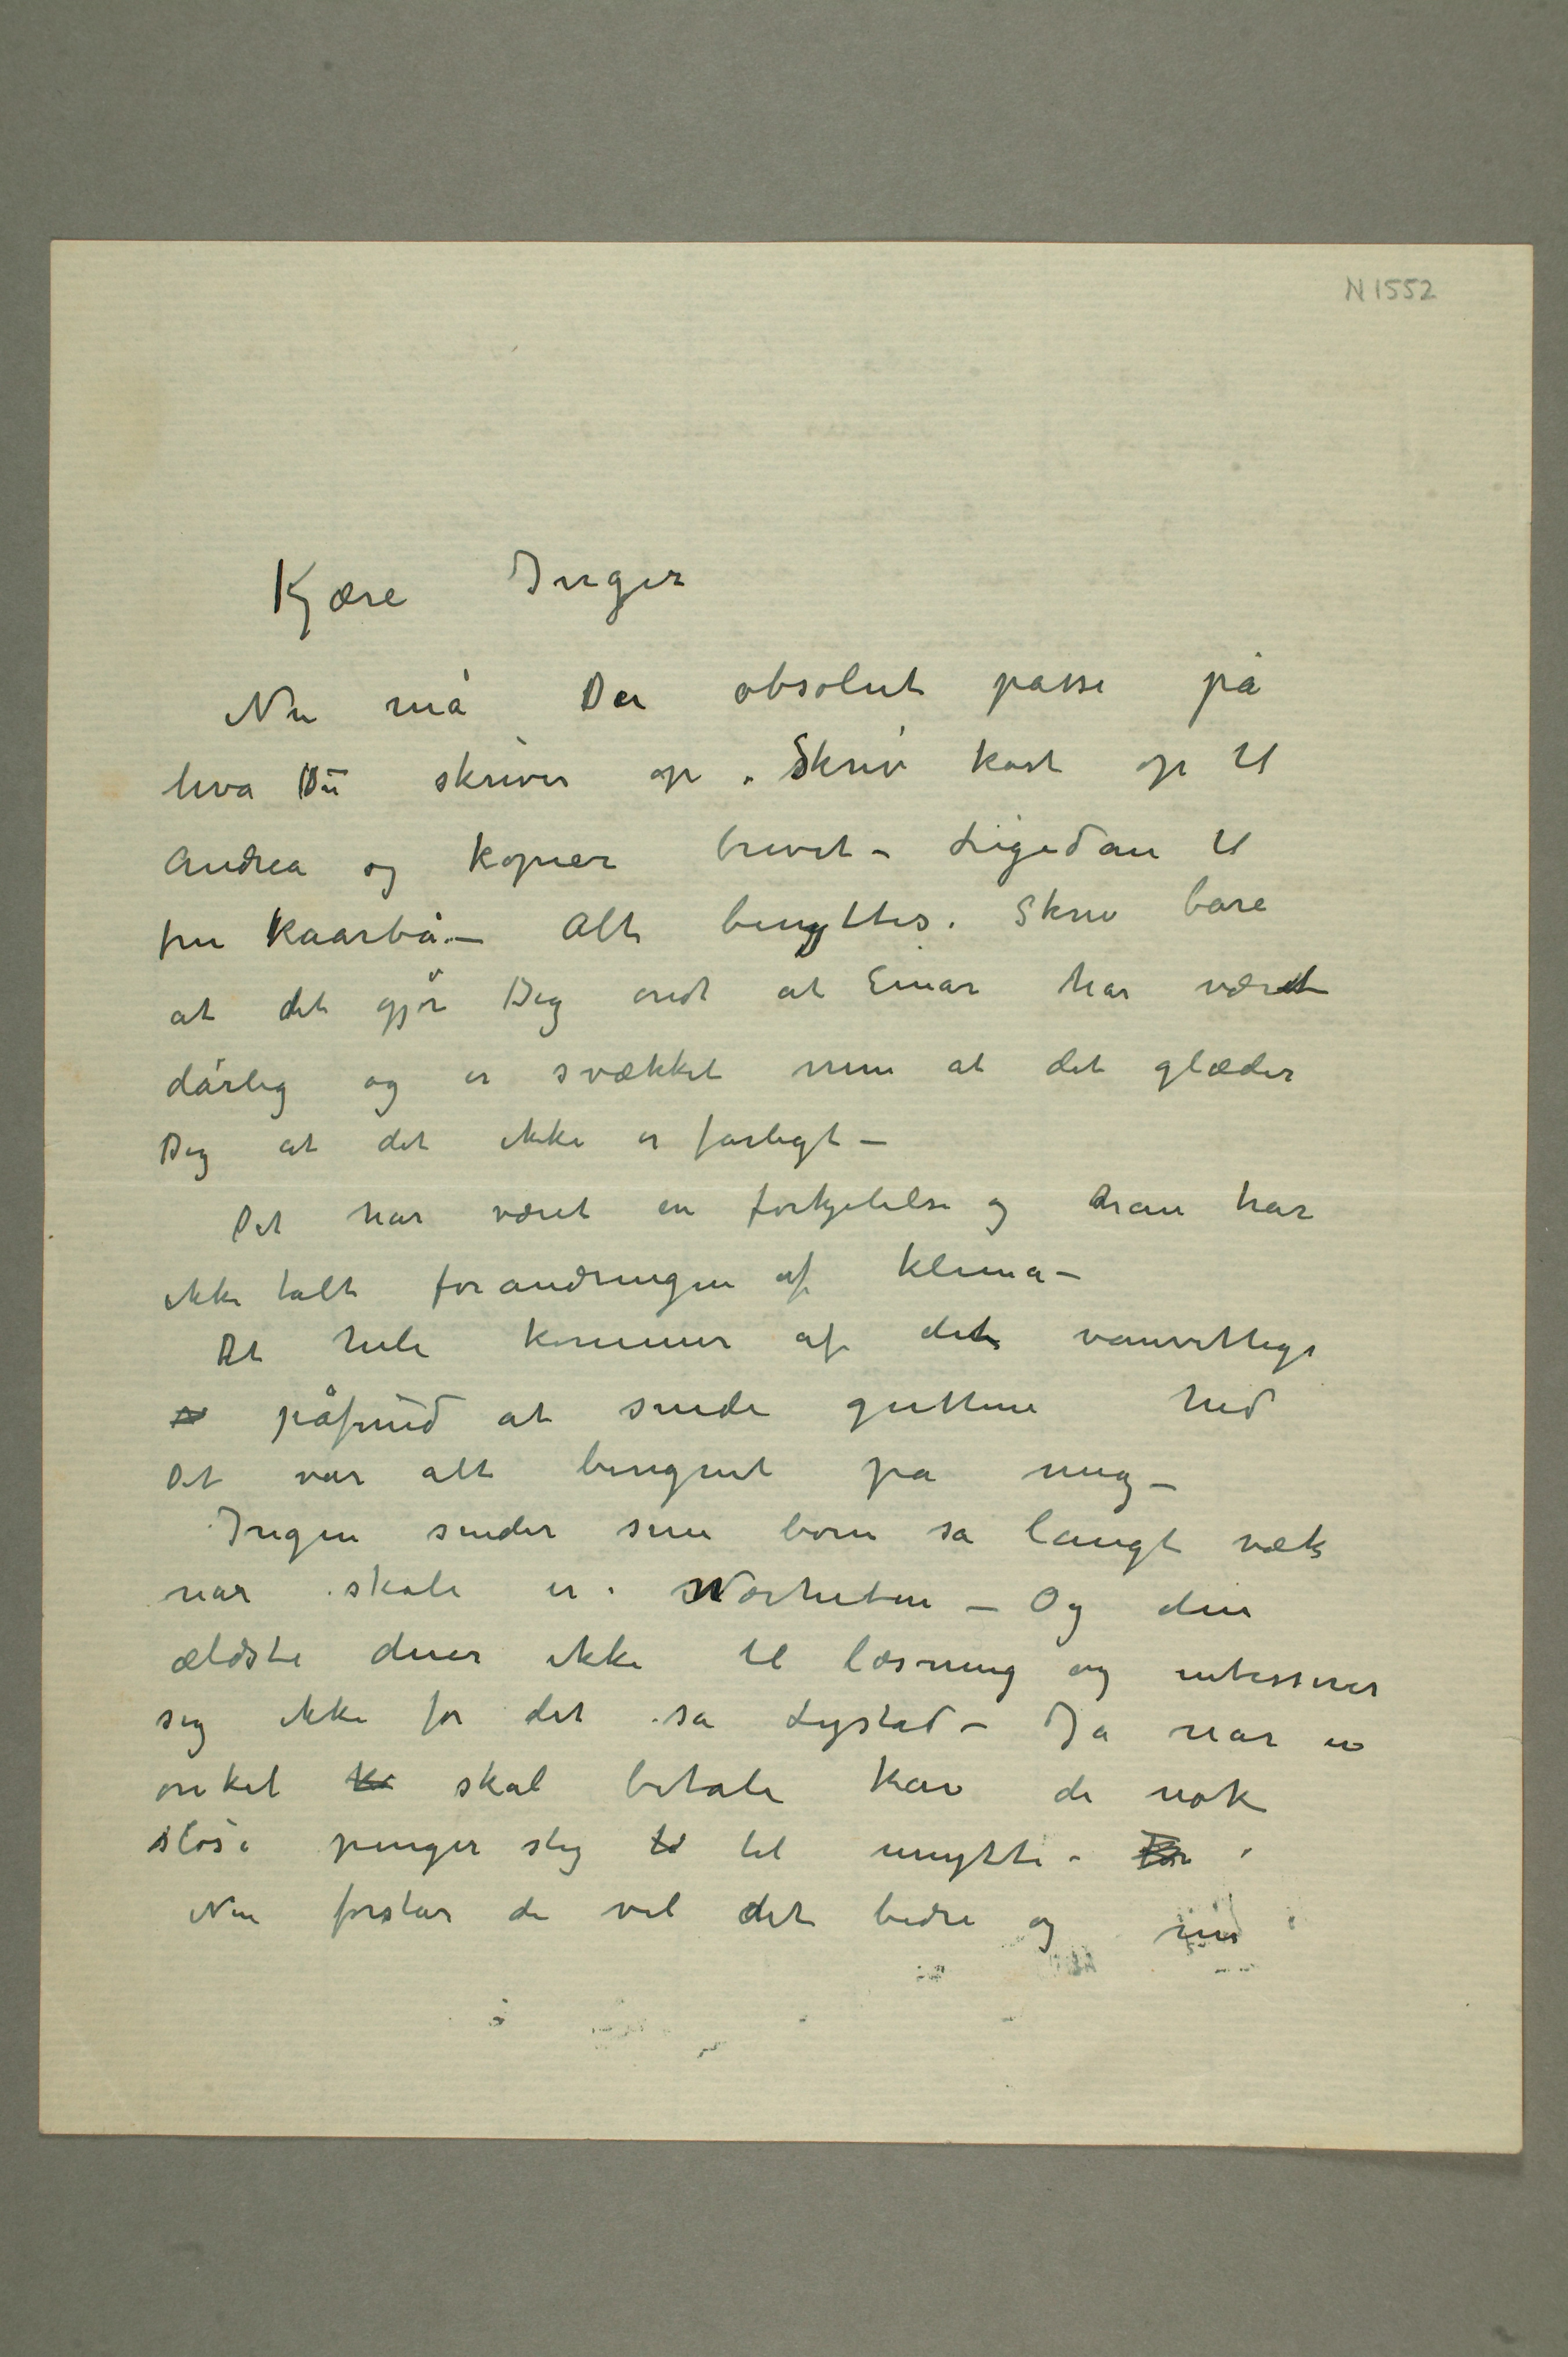 N 1552
Kjære Inger
Nu må Du absolut passe på
hva Du skriver op. Skriv kort op til
Andrea og kopier brevet – Ligedan til
fru Kaarbå. – Alt benyttes. Skriv bare
at det gjør Dig ondt at Einar har været
dårlig og er svækket men at det glæder
Dig at det ikke er farligt –
Det har været en forkjølelse og han har
ikke tålt forandringen af klima –
Det hele kommer af det vanvittige
påfund at sende guttene ned
Det var alt beregnet på mig –
Ingen sender sine børn så langt væk
når skole er i Nærheten – Og den
ældste duer ikke til læsning og intesserer
sig ikke for det sa Lystad – Ja når en
onkel skal betale kan de nok
sløse penger slig til unytte –
Nu forstår de vel det bedre og nu